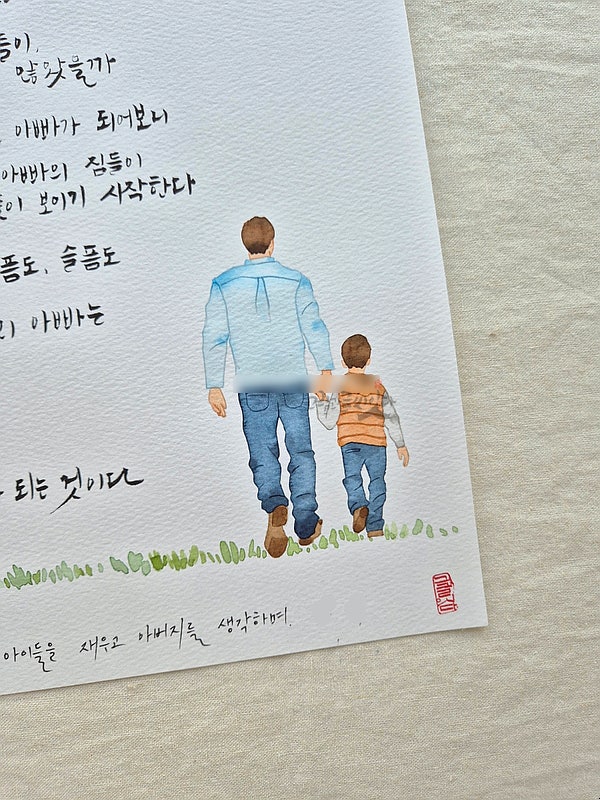 들이,
않았을까
아빠가 되어보니
아빠의 짐들이
들이 보이기 시작한다
픔도, 슬픔도
아빠는
되는 것이다
아이들을 재우고 아버지를 생각하며.